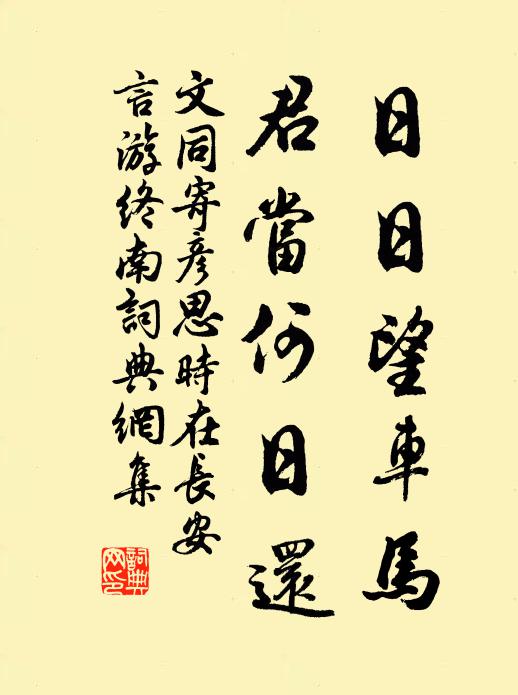 日日望車馬
君當何日還
文同寄彥思時在長安
言游終南詞典網集
詞典网印